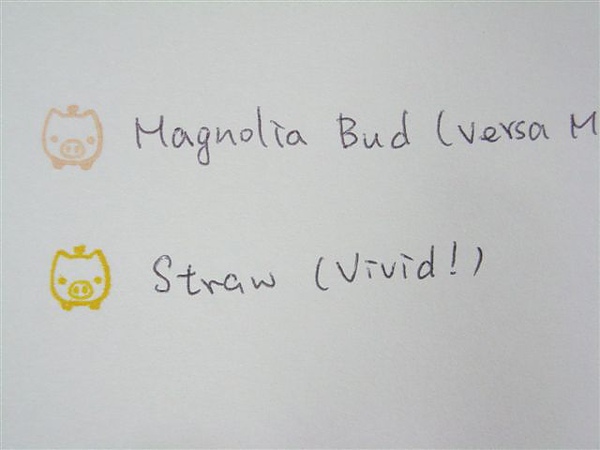 Magnolia Bud (Versa M
Straw (Vivid!)